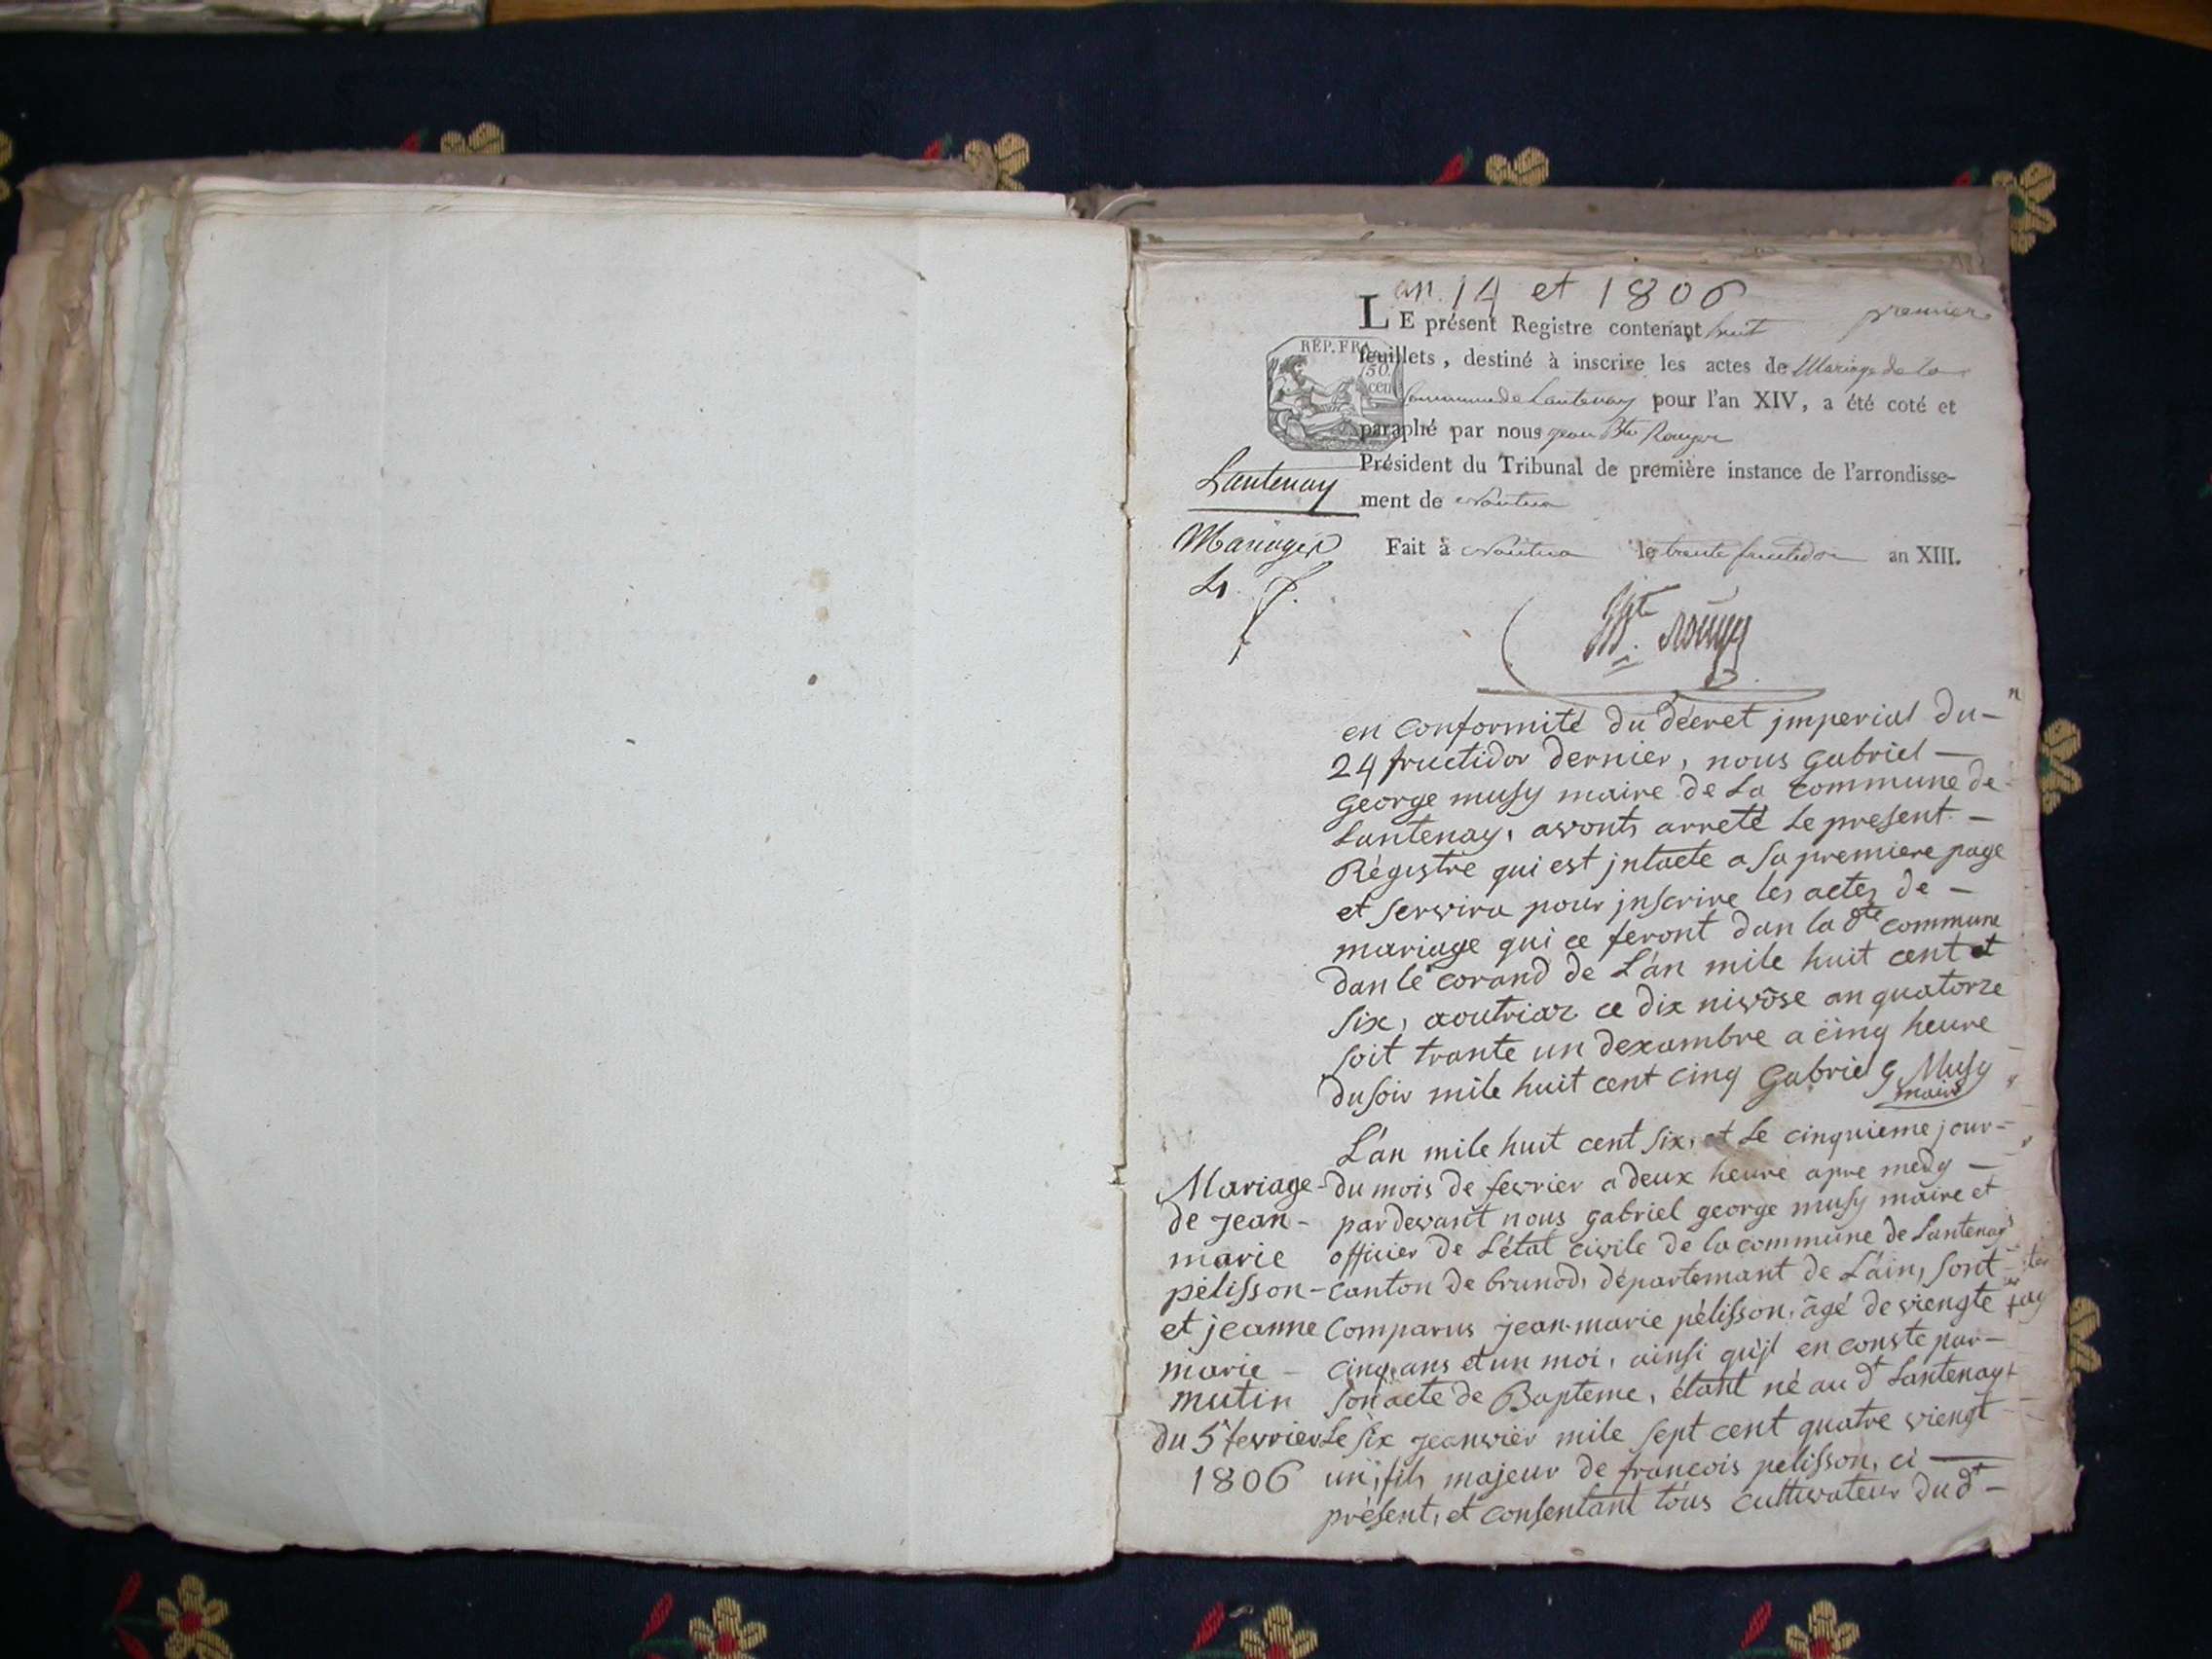 an. 14 et 1806
premier
LE présent Registre contenant huit
feuillets, destiné à inscrire les actes de Mariage de la
Commune de Lantenay pour l'an XIV, a été coté et
paraphé par nous jean Bte Rouyer
Président du Tribunal de première instance de l'arrondisse-
ment de Nantua
Fait à Nantua le trente fructidor an XIII.
RÉP. FRA.
50.
cen
Lantenay
Mariages
en conformité du décret jmperial du-
24 fructidor dernier, nous gabriel —
george musy maire de La commune de
Lantenay, avonts arreté Le present. —
Régistre qui est jntacte a sa premiere page
et servira pour jnscrire les actes de —
mariage qui ce feront dan la dte commune
dan le corand de L'an mile huit cent et
six, aoutriaz ce dix nivôse an quatorze
soit trante un dexambre a çinq heure
du soir mile huit cent cinq Gabriel G. Musy
maire
L'an mile huit cent six, et Le cinquieme jour-
du mois de fevrier a deux heure apre medy —
pardevant nous gabriel george musy maire et
officier de L'état civile de la commune de Lantenay
canton de brunod, département de L'ain, sont
comparus jean-marie pélisson, âgé de viengte
cinq ans et un moi, ainsi qu'jl en conste par —
son acte de Bapteme, étant né au dt Lantenay
Le six jeanvier mile sept cent quatre viengt
un, fils majeur de françois pelisson, ci —
présent, et consentant tous cultivateur du dt —
Mariage -
de jean -
marie
pélisson -
et jeanne
marie -
mutin
du 5 fevrier
1806